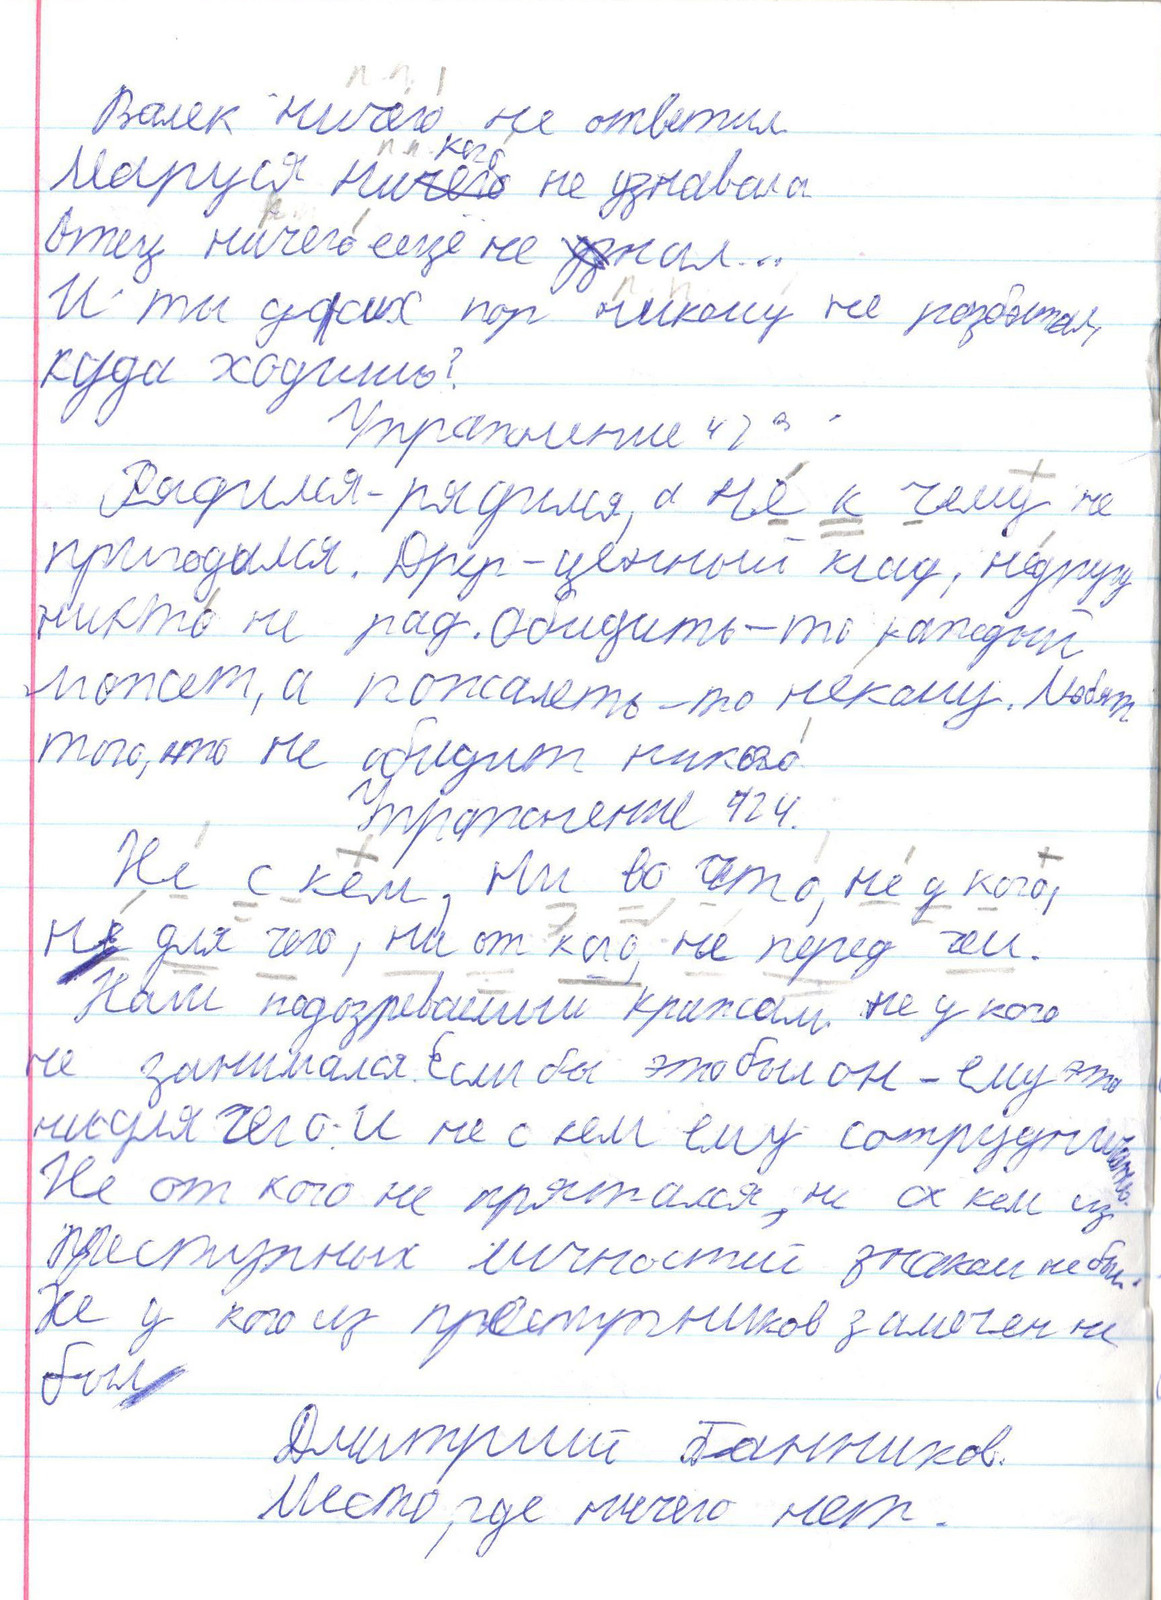 п. п.
Валек ничего не ответил
п. п. кого
Маруся ничего не узнавала
Отец ничего ещё не знал...
п. п.
И ты до сих пор никому не разболтал,
куда ходишь?
Упражнение 423
Рядился-рядился, а не к чему не
пригодился. Друг-ценный клад, недругу
никто не рад. Обидить-то каждый
может, а пожалеть-то некому. Любят
того, кто не обидит никого
Упражнение 424.
Не с кем, ни во что, не у кого,
не для чего, ни от кого, не перед чем.
Наш подозреваемый кражам не у кого
не занимался. Если бы это был он - ему это
ни для чего. И не с кем ему сотрудничать.
Не от кого не прятался, не с кем из
преступных личностей знаком не был.
Не у кого из преступников замечен не
был
Дмитрий Банников.
Место, где ничего нет.